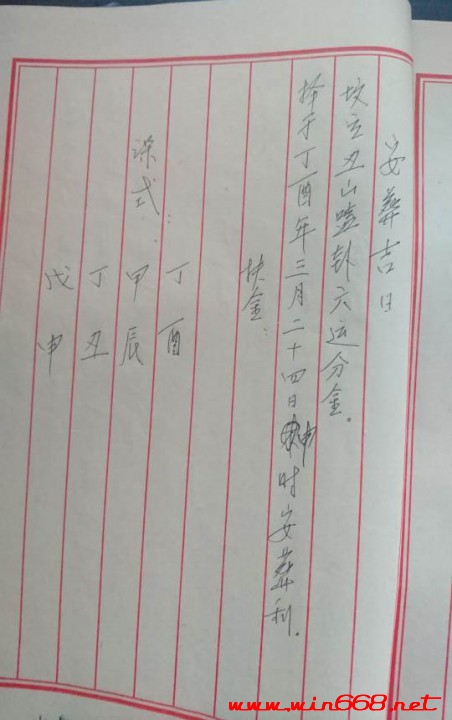 安葬吉日
坟立丑山噬卦六运分金.
择于丁酉年三月二十四日申时安葬利.
扶金:
丁酉
课式: 甲辰
丁丑
戊申
www.win668.net